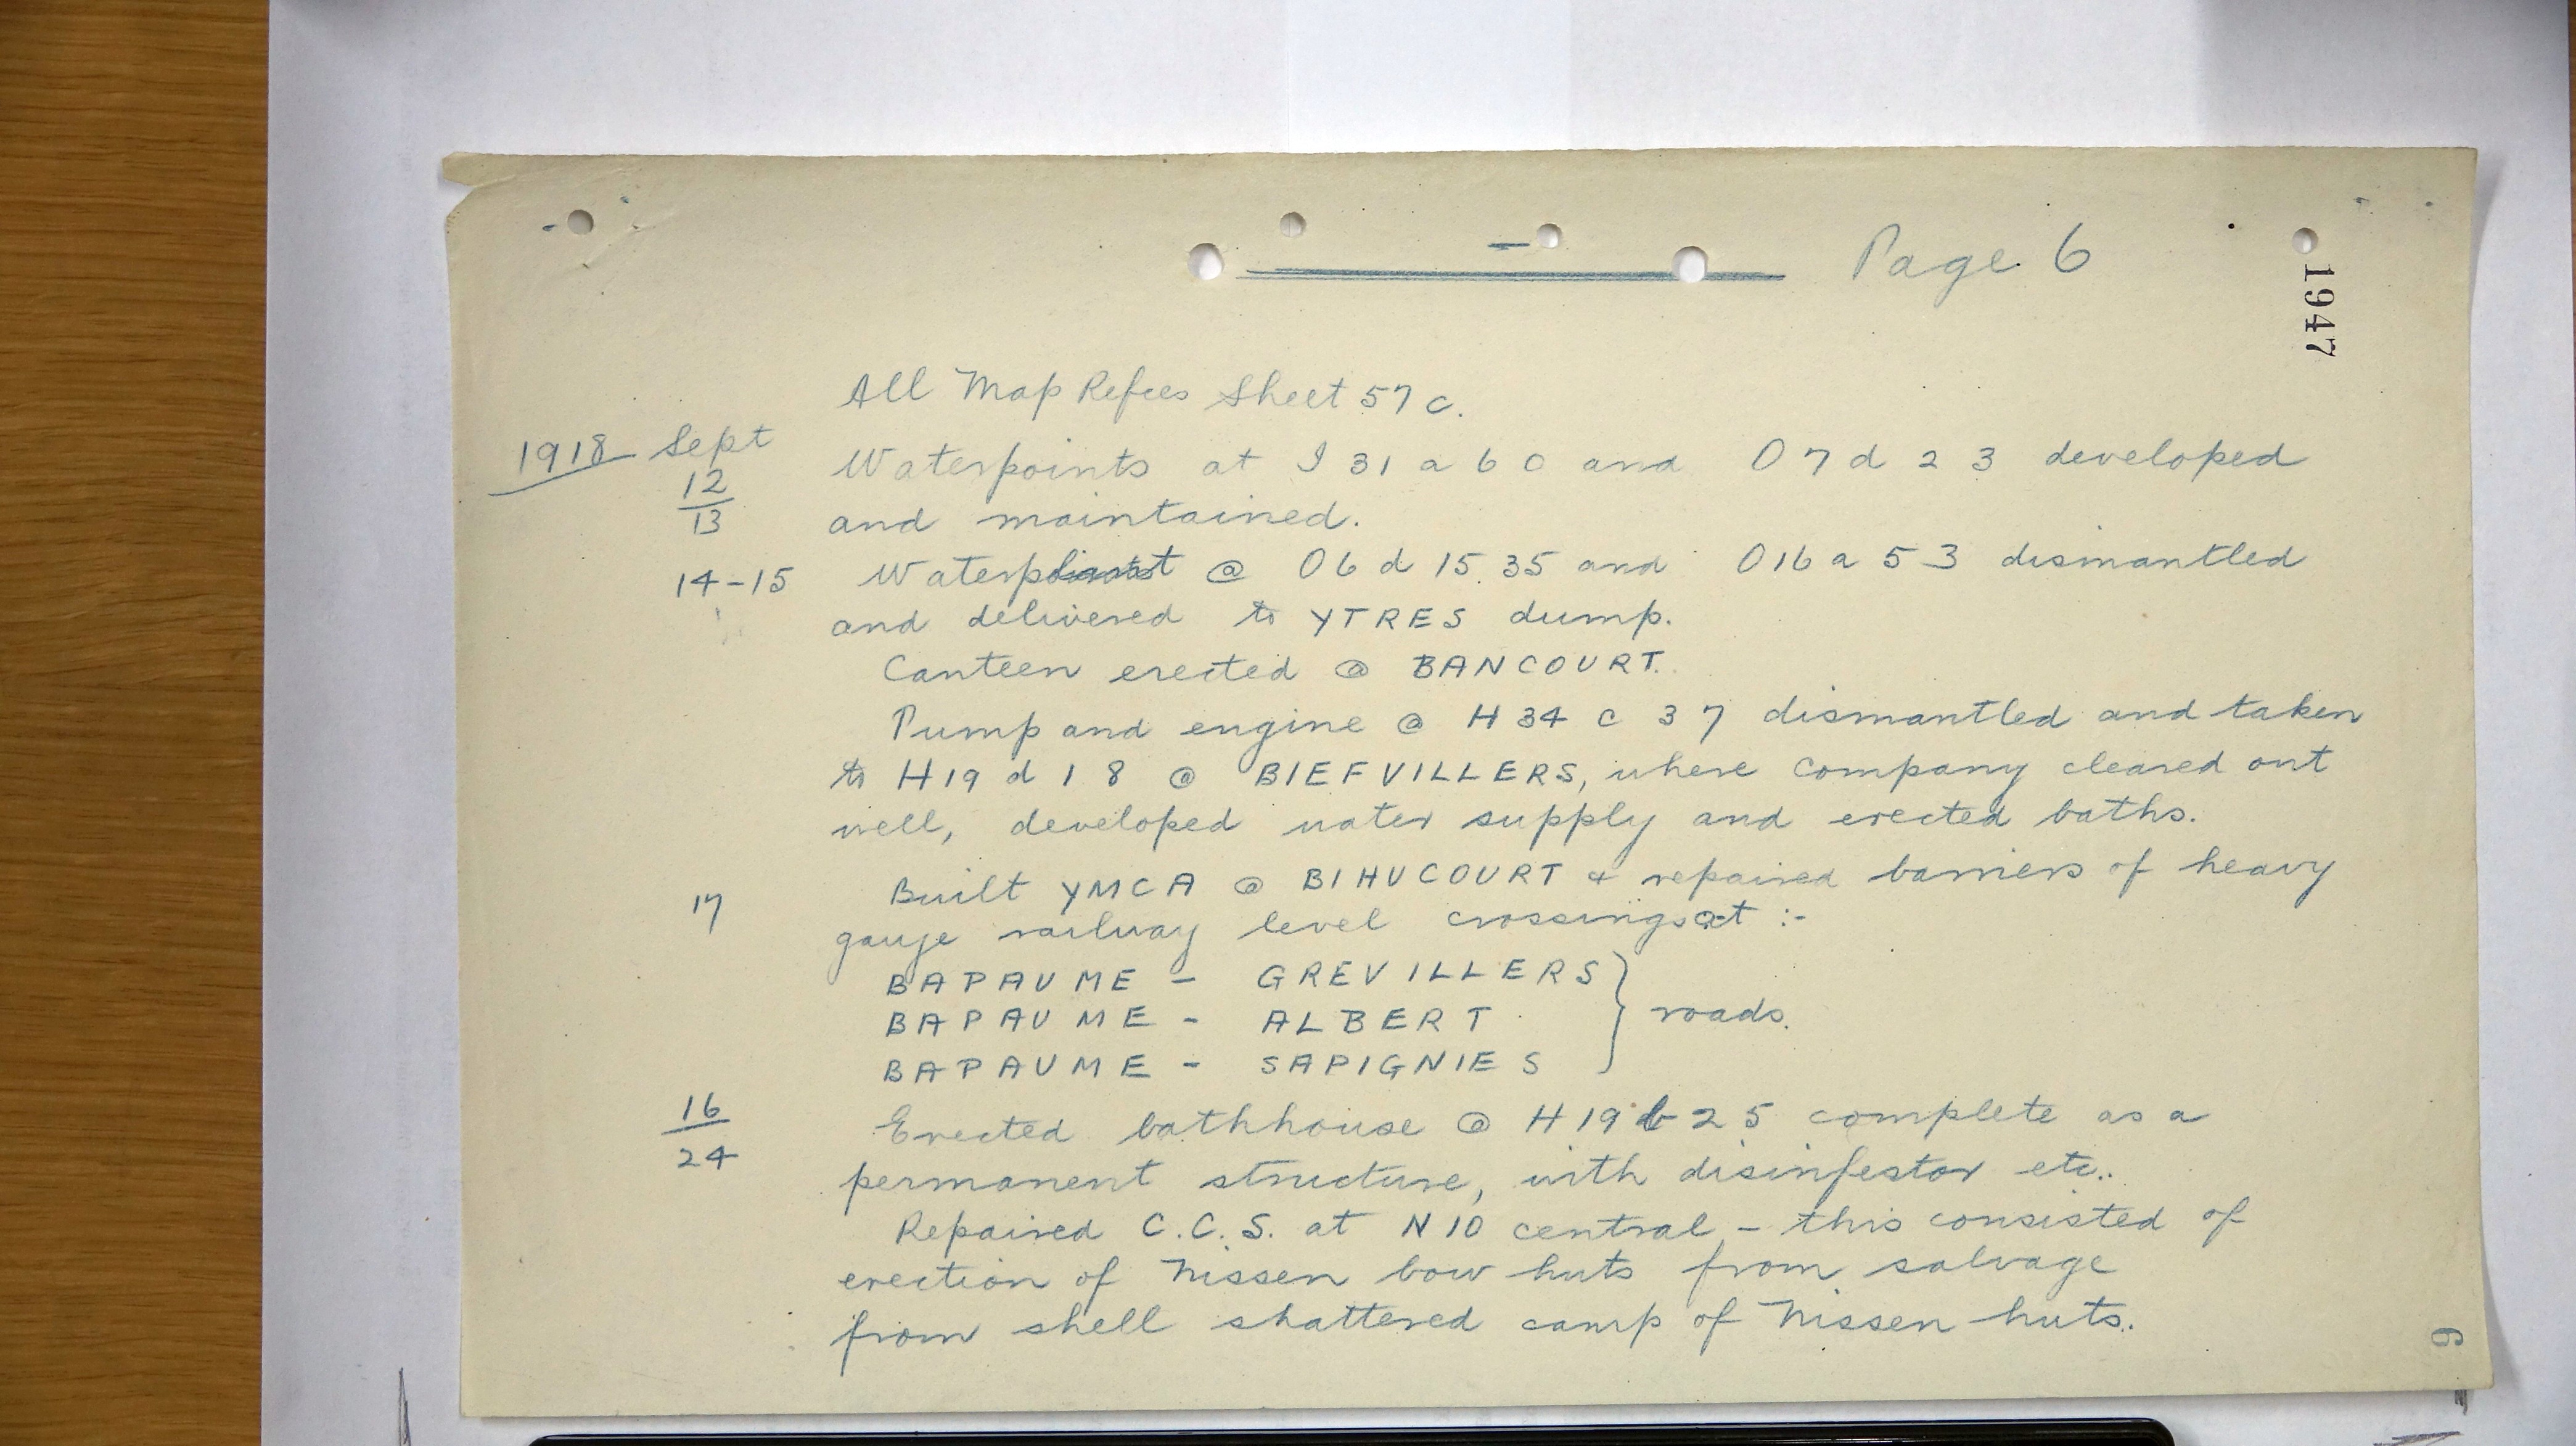 Page 6
1947
All Map Refces Sheet 57 c.
1918 Sept
12/13 Waterpoints at I 31 a 6 0 and O 7 d 2 3 developed
and maintained.
14-15 Waterpoint @ O 6 d 15.35 and O 16 a 5 3 dismantled
and delivered to YTRES dump.
Canteen erected @ BANCOURT.
Pump and engine @ H 34 c 3 7 dismantled and taken
to H 19 d 1 8 @ BIEFVILLERS, where company cleared out
well, developed water supply and erected baths.
17 Built YMCA @ BIHUCOURT & repaired barriers of heavy
gauge railway level crossings at :-
BAPAUME - GREVILLERS
BAPAUME - ALBERT } roads.
BAPAUME - SAPIGNIES
16/24 Erected bathhouse @ H 19 b 2 5 complete as a
permanent structure, with disinfestor etc..
Repaired C.C.S. at N 10 central - this consisted of
erection of Nissen bow huts from salvage
from shell shattered camp of Nissen huts.
6